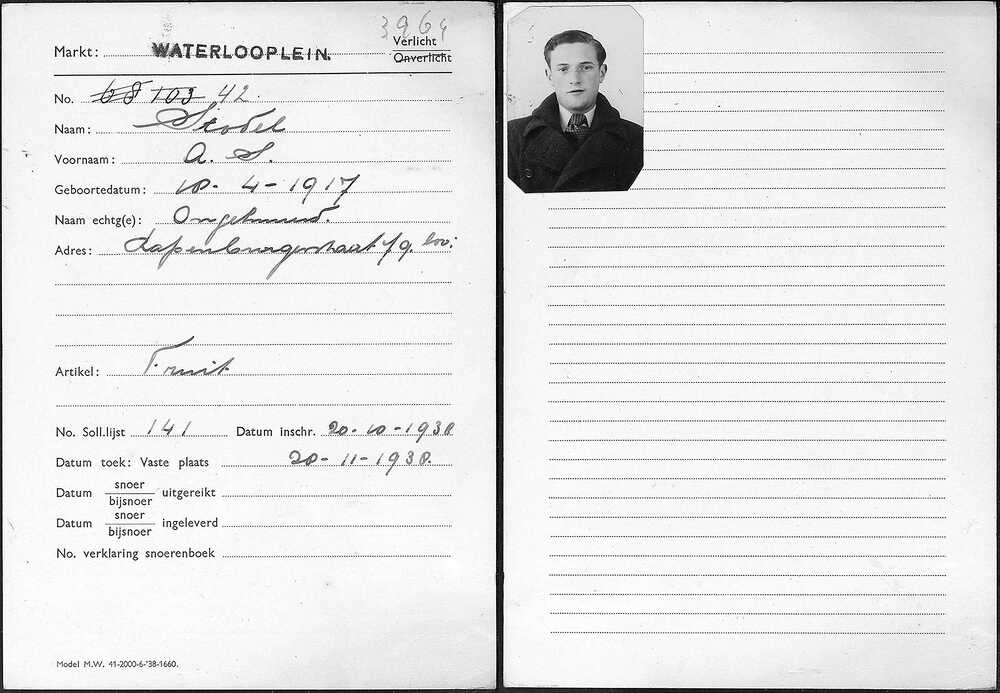 3964
Markt: WATERLOOPLEIN.
Verlicht
Onverlicht
No. 68 103 42.
Naam: Stodel
Voornaam: A. S.
Geboortedatum: 10-4-1917
Naam echtg(e): Ongehuwd.
Adres: Rapenburgerstraat 19 bov:
Artikel: Fruit
No. Soll.lijst 141 Datum inschr. 20-10-1938
Datum toek: Vaste plaats 20-11-1938.
Datum snoer/bijsnoer uitgereikt
Datum snoer/bijsnoer ingeleverd
No. verklaring snoerenboek
Model M.W. 41-2000-6-'38-1660.